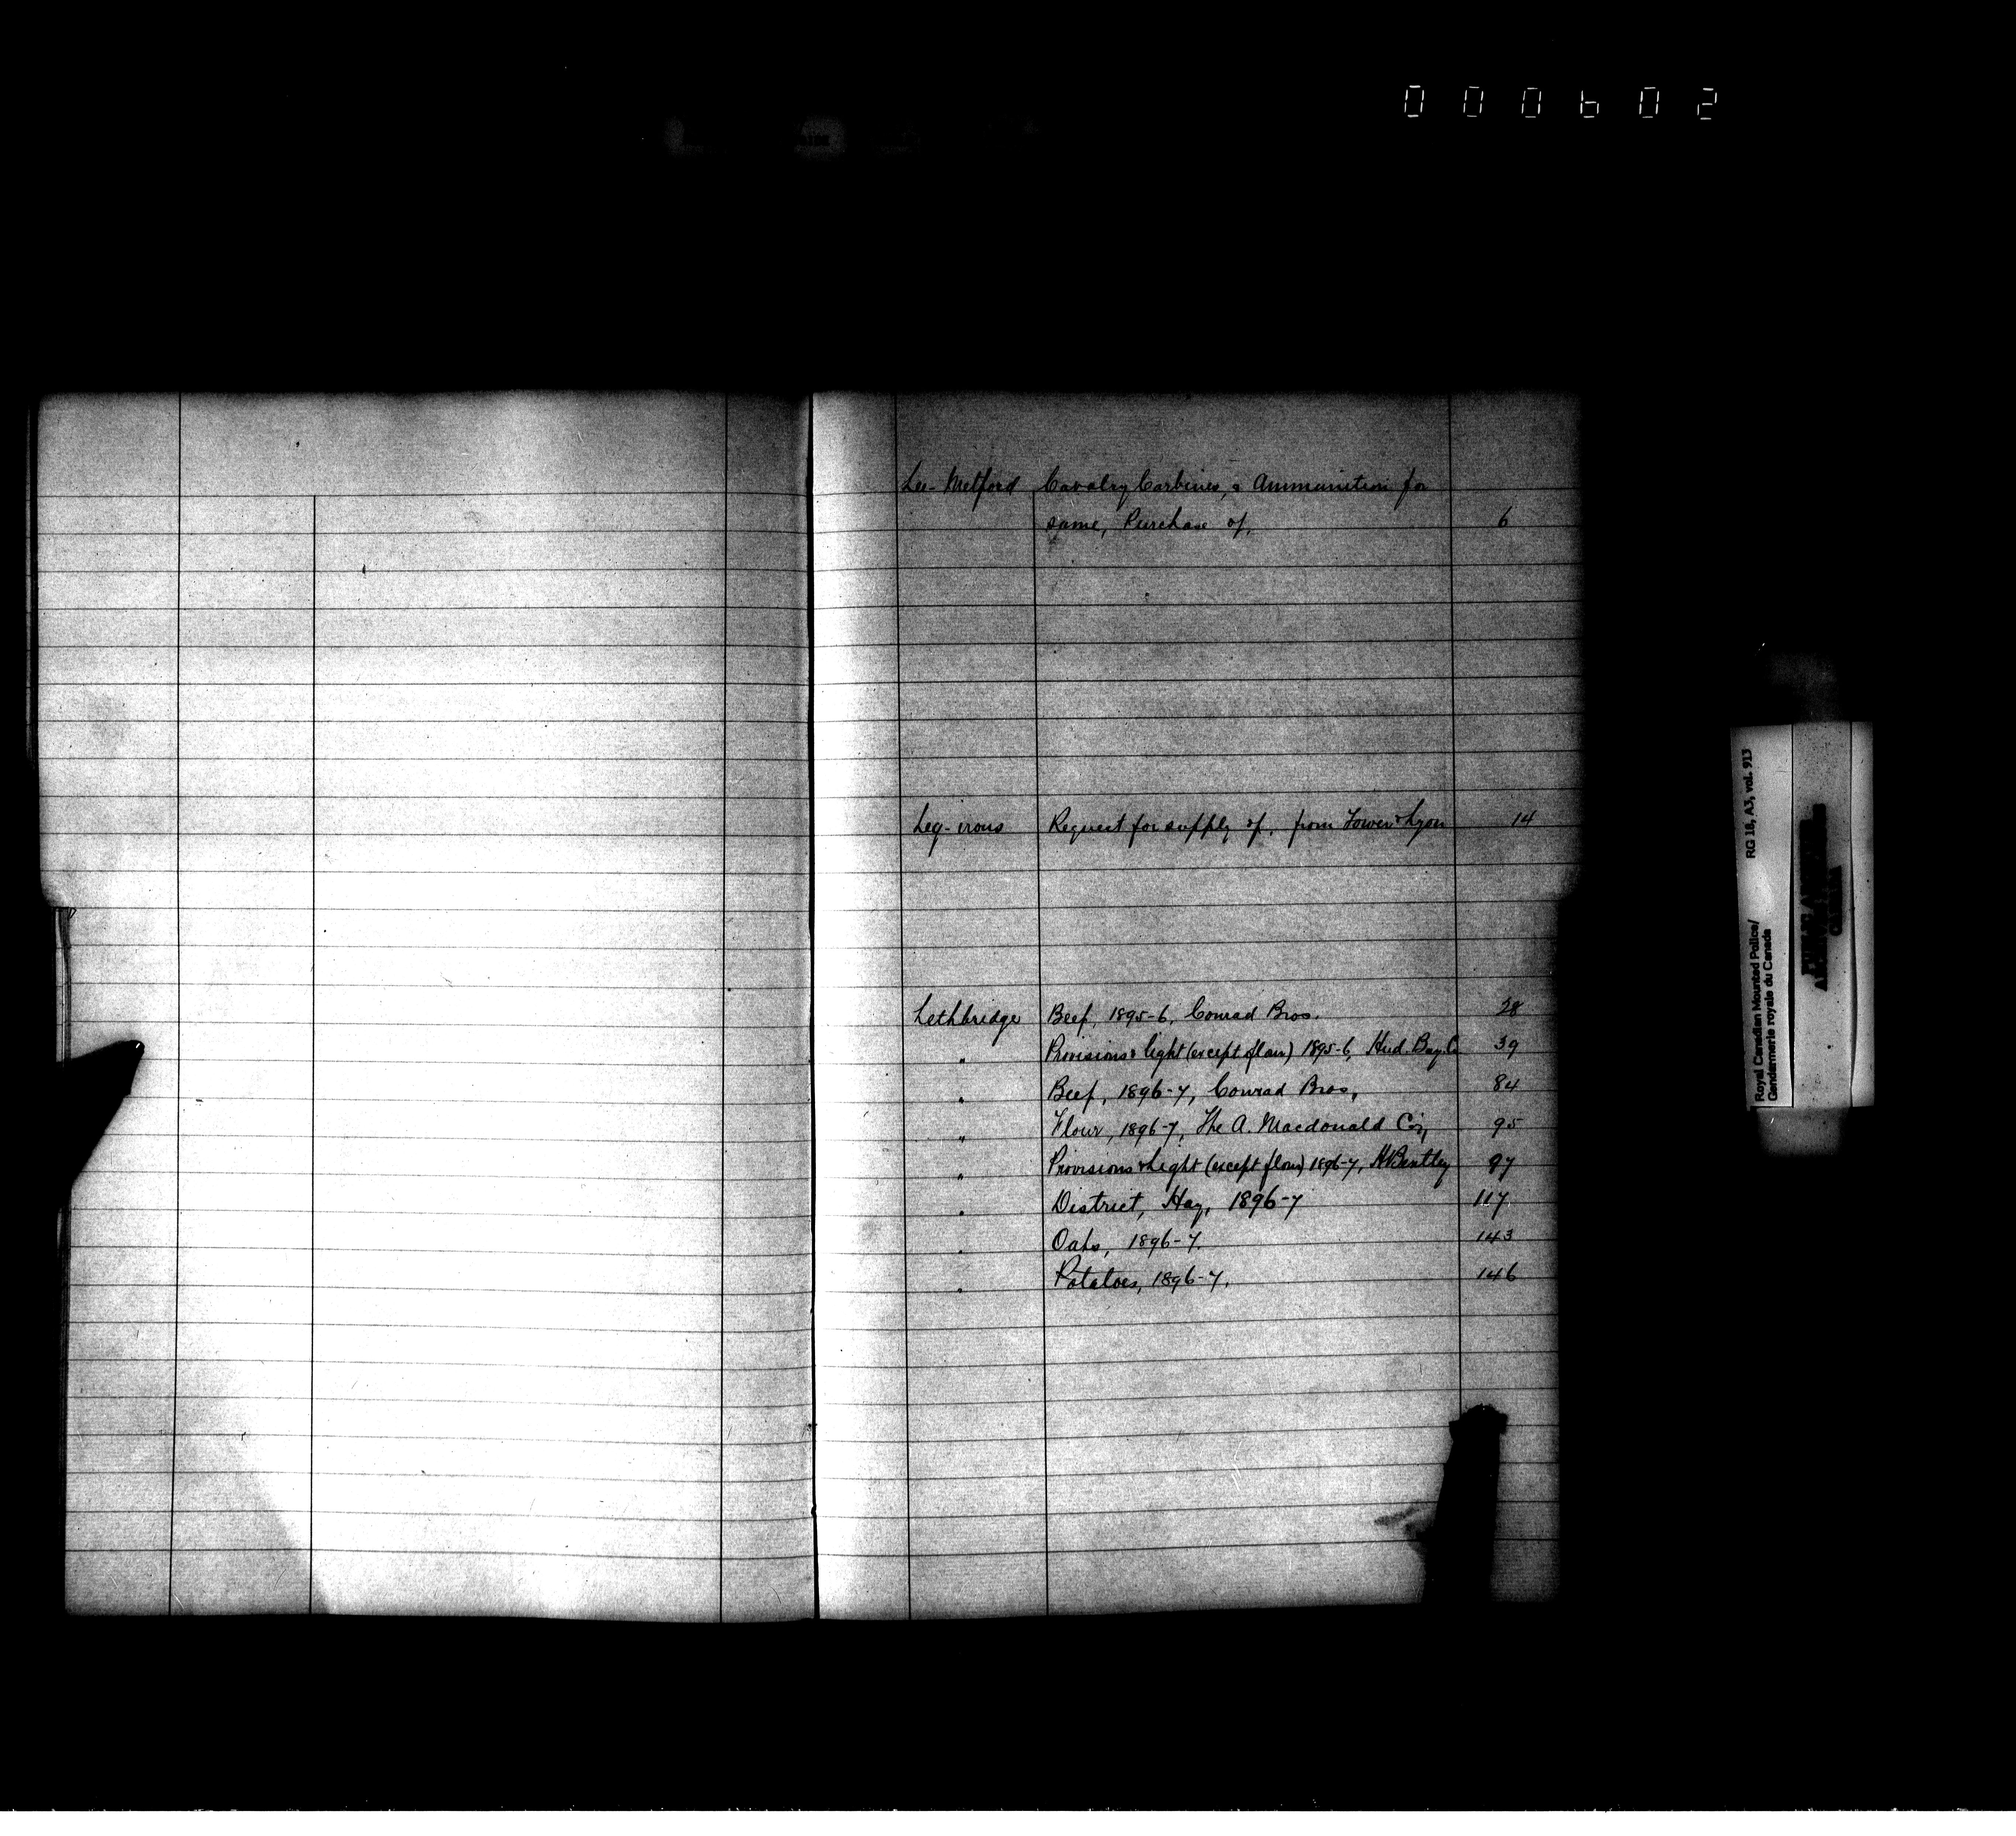 000602
Lee-Metford Cavalry Carbines, & Ammunition for
same, Purchase of, 6
Leg-irons Request for supply of, from Tower & Lyon 14
Lethbridge Beef, 1895-6, Conrad Bros. 28
" Provisions & light (except flour) 1895-6, Hud. Bay. Co 39
" Beef, 1896-7, Conrad Bros, 84
" Flour, 1896-7, The A. Macdonald Co's, 95
" Provisions & Light (except flour) 1896-7, H Bentley 97
" District, Hay, 1896-7 117
" Oats, 1896-7. 143
" Potatoes, 1896-7. 146
Royal Canadian Mounted Police/ RG 18, A3, vol. 913
Gendarmerie royale du Canada